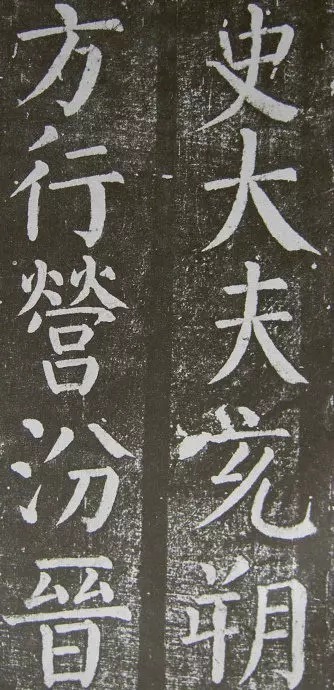 史大夫充朔
方行營汾晉